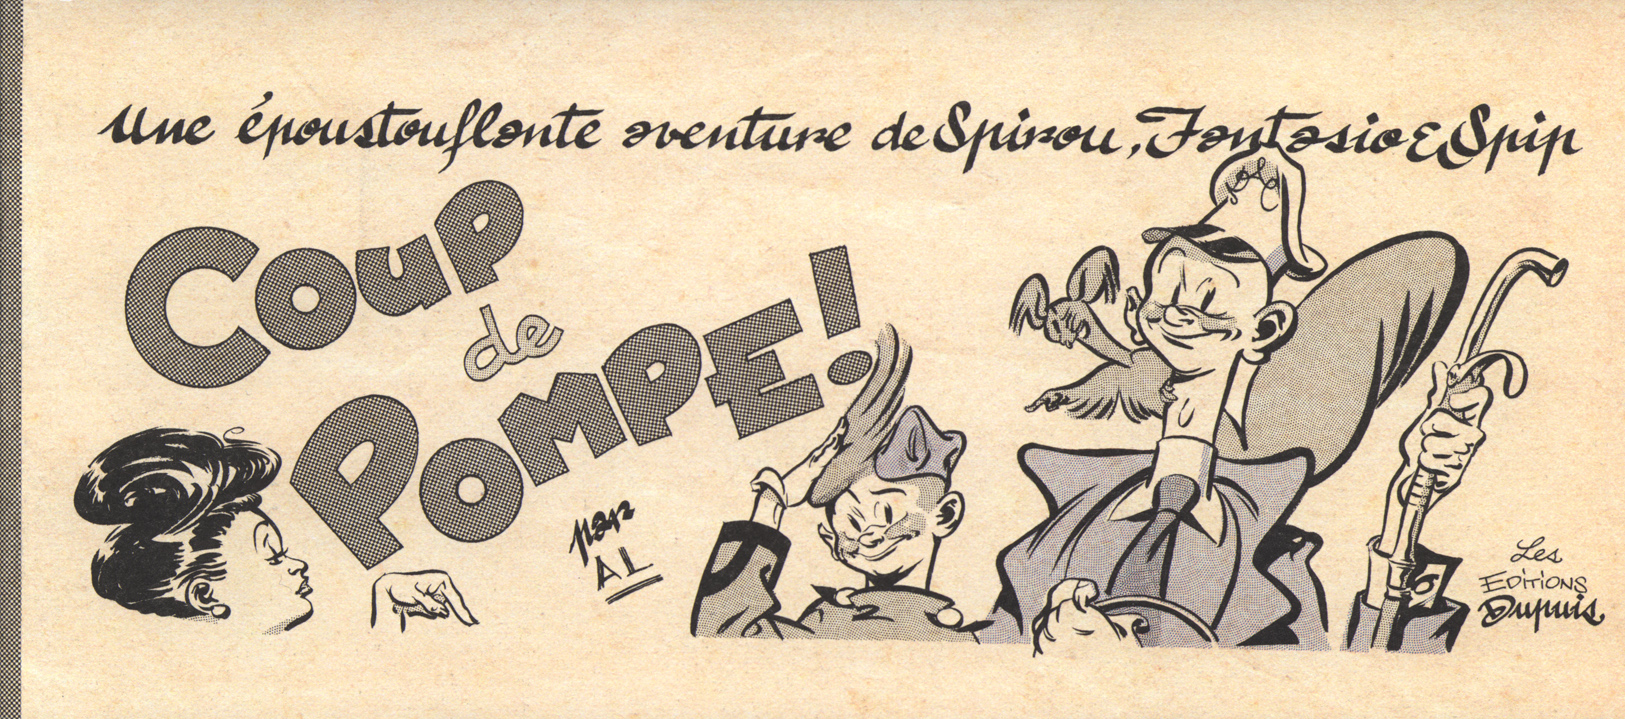 Une époustouflante aventure de Spirou, Fantasio & Spip
Coup
de
Pompe!
par
AL
Les
Editions
Dupuis